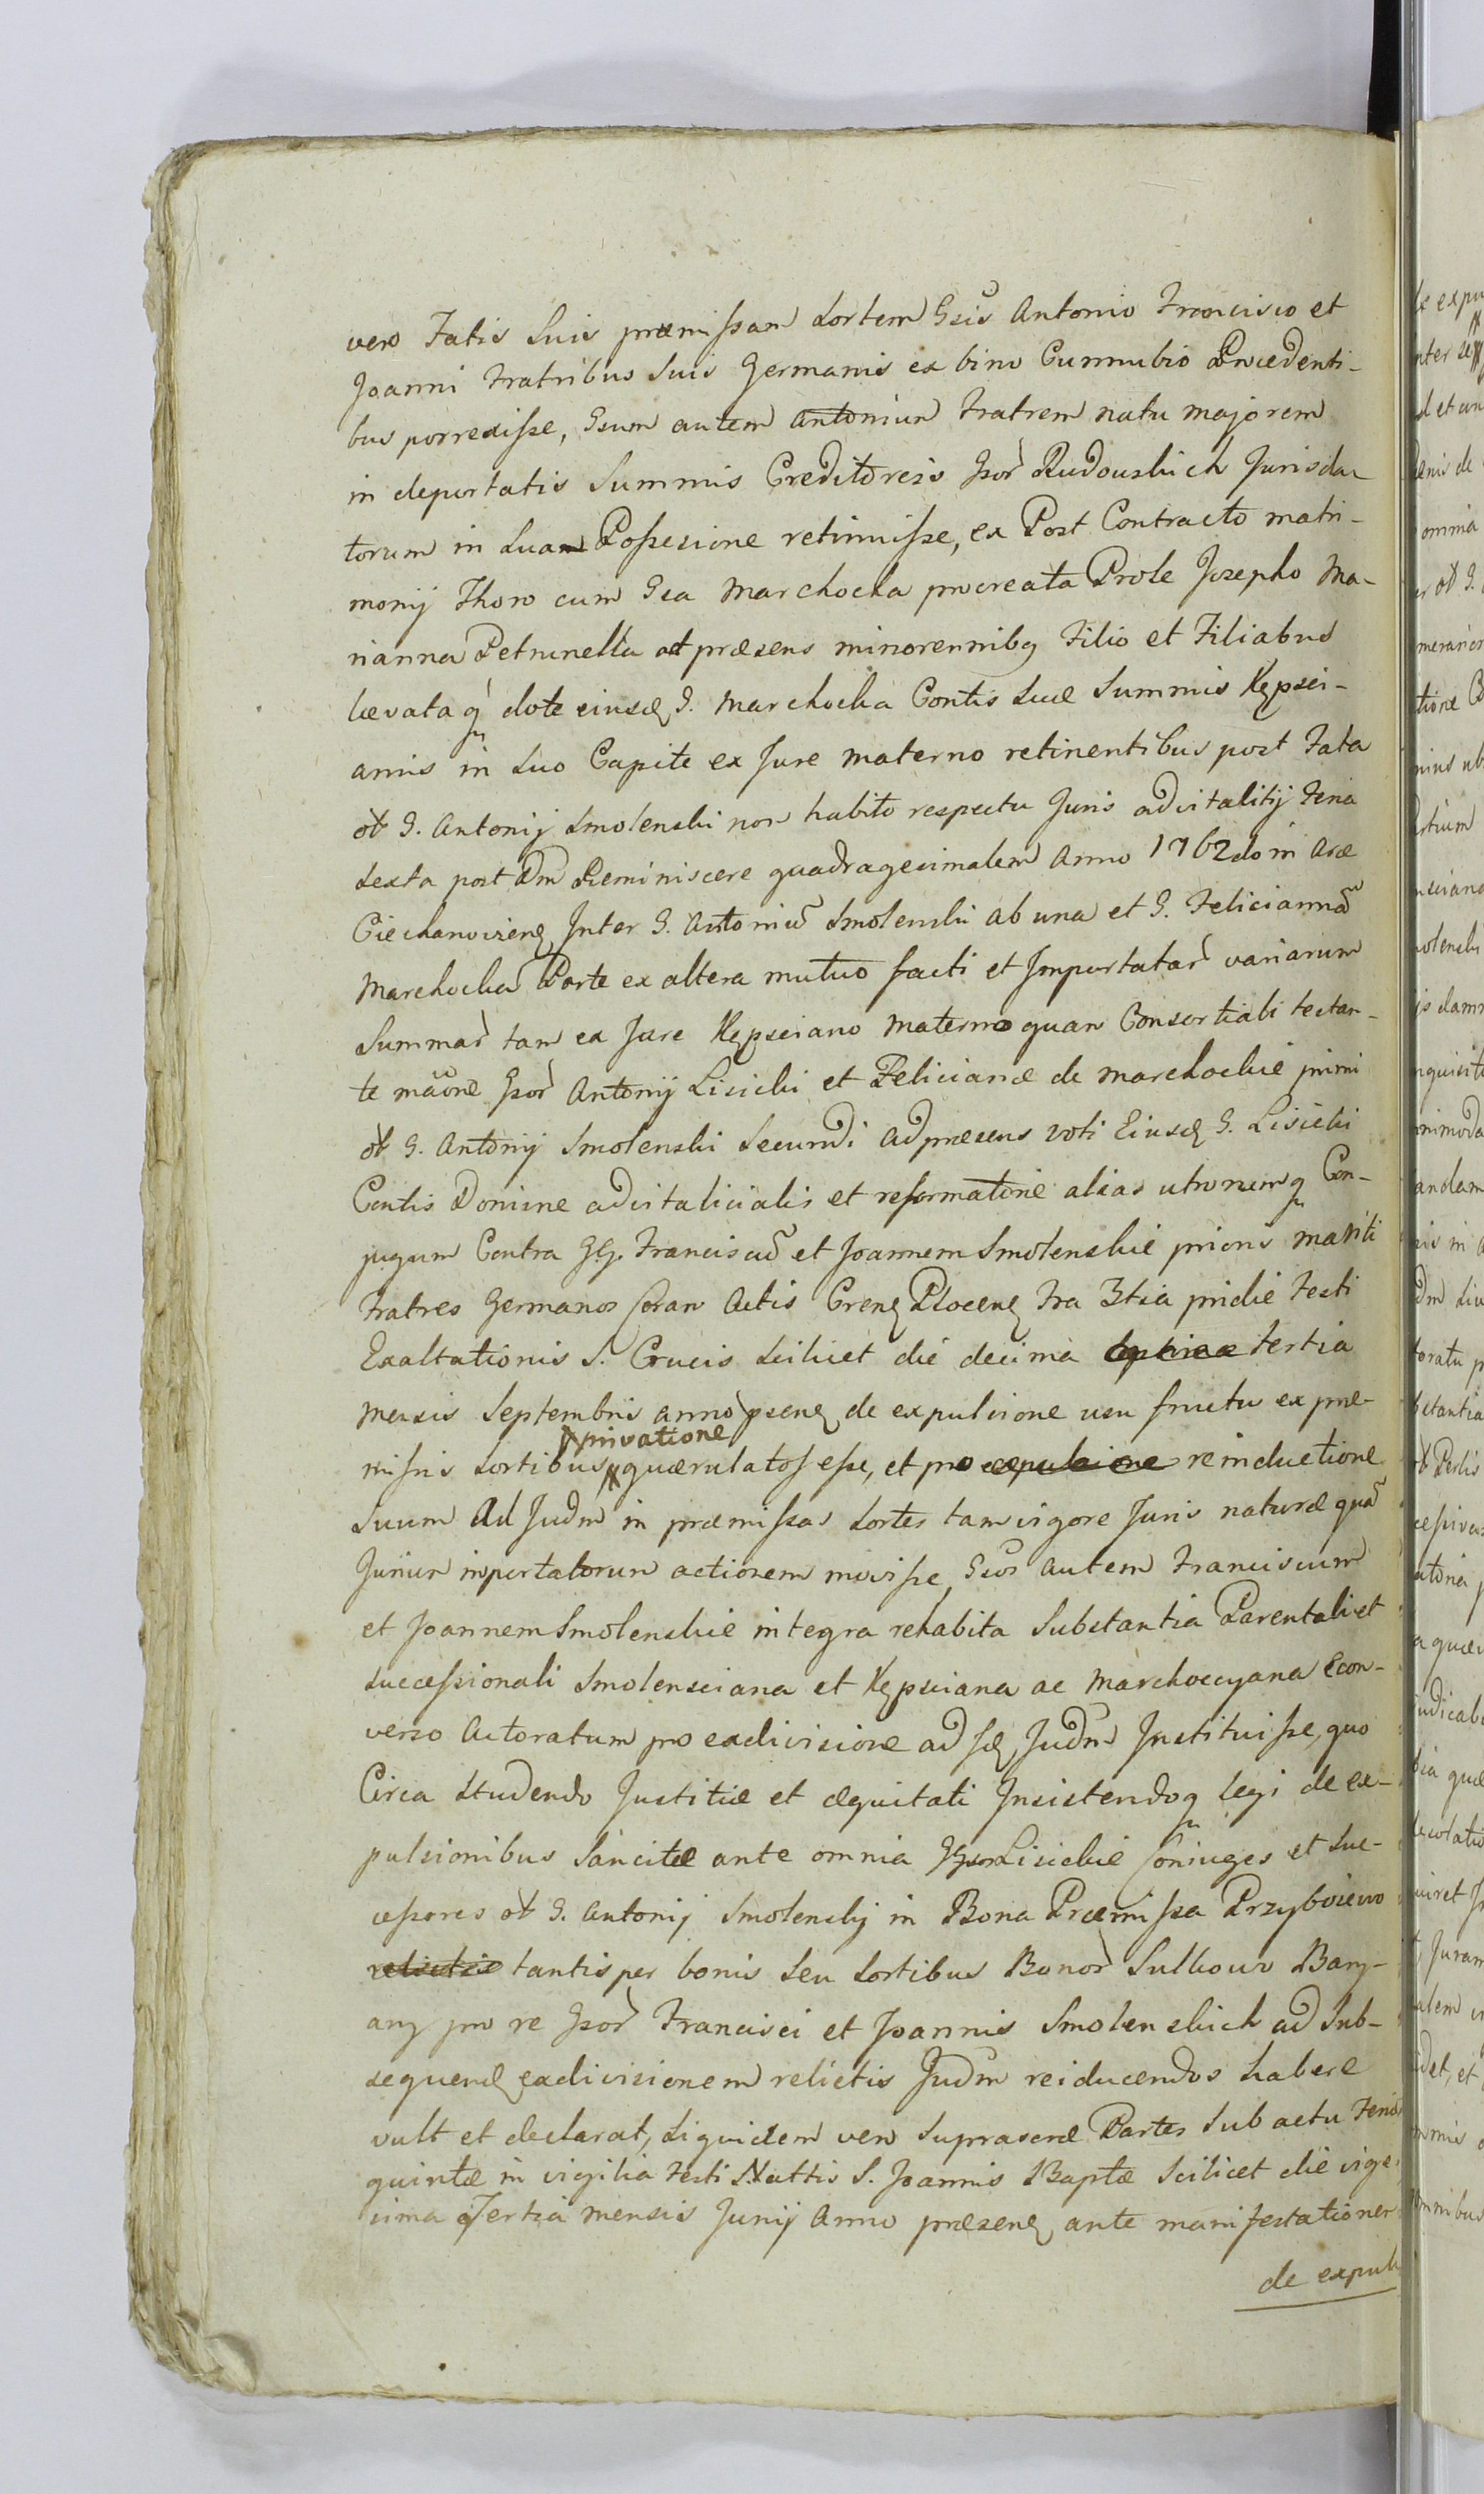 vero Fatis Suis præmissam Sortem Gsis Antonio Francisco et
Joanni Fratribus Suis Germanis ex bino Cunnubio Procedenti-
bus porrexisse, Gsum autem Antonium Fratrem natu majorem
in deportatis Summis Creditoreis Gsor Rudouskich Jurisda-
torum in Suam Possesione retinuisse, ex Post Contracto matri-
monij Thoro cum Gsa Marchocka procreata Prole Josepho Ma-
rianna Petrunella ad præsens minorennibq Filio et Filiabus
levataq dote eiusd G. Marchocka Contis Suæ Summis Kępsci-
anis in Suo Capite ex Jure materno retinentibus post Fata
ol G. Antonij Smolenski non habito respectu Juris advitalitij Feria
Sexta post Dm Reminiscere quadragesimalem Anno 1762do in Arce
Ciechanoviens Inter G. Antoniu Smolenski ab una et G. Felicianna
Marchocka Parte ex altera mutuo facti et Importatar variarum
Summar tam ex Jure Kępsciano Materno quam Consortiali tectan-
te maone Gsor Antonij Lisicki et Felicianæ de Marchockie primi
ol G. Antonij Smolenski Secundi ad præsens voti Eiusd G. Lisicki
Contis Domine advitalicialis et reformatorie alias utrorumq Con-
jugum Contra GG. Franciscu et Joannem Smolenskie prioris mariti
Fratres Germanos Coran Actis Crens Plocens Fra 3tia pridie Festi
Exaltationis S. Crucis Scilicet die decima septima tertia
mensis Septembris anno psens de expulsione usu fructu ex præ-
privatione
missis Sortibus quærulatos esse, et pro expulsione reinductione
Suum Ad Judm in præmissas Sortes tam vigore Juris naturæ qua
Jurium inportatorum actionem movisse, Gsos autem Franciscum
et Joannem Smolenskie integra rehabita Substantia Parentali et
successionali Smolensciana et Kępsciana ac Marchoccyana Econ-
verso Actoratum pro exdivisione ad sd Judm Instituisse, quo
Circa Studendo Justitiæ et æquitati Insistendoq legi de ex-
pulsionibus Sancitæ ante omnia Lisickie Coniuges et Suc-
cessores ol G. Antonij Smolenskij in Bona Præmissa Przyboiewo
relictis tantisper bonis Seu Sortibus Bonor Sulkowo Bary-
any pro re Gsor Francisci et Joannis Smolenskich ad Sub-
sequend exdivisionem relictis Judm reiducendos habere
vult et declarat, Siquidem vero Suprascræ Partes Sub actu Feriæ
quintæ in vigilia Festi Nattis S. Joannis Baptæ Scilicet die vige-
sima Tertia mensis Junij Anno præsens ante manifestationem
de expul